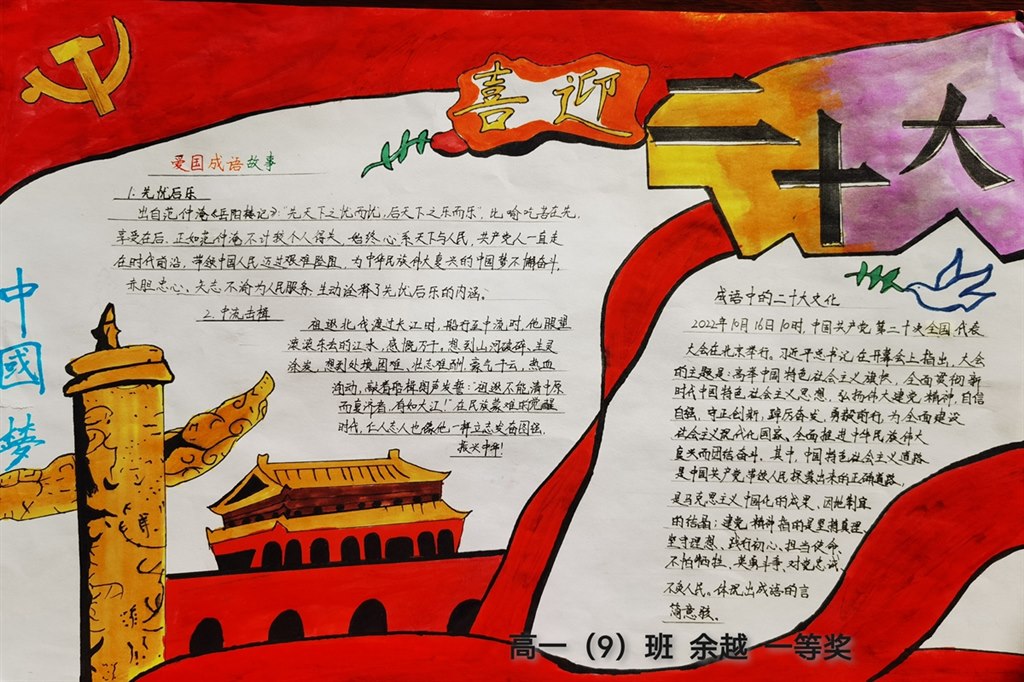 喜迎
二十大
爱国成语故事
1. 先忧后乐
出自范仲淹《岳阳楼记》:"先天下之忧而忧,后天下之乐而乐",比喻吃苦在先,
享受在后。正如范仲淹不计较个人得失,始终心系天下与人民,共产党人一直走
在时代前沿,带领中国人民迈过艰难险阻,为中华民族伟大复兴的中国梦不懈奋斗,
赤胆忠心、矢志不渝为人民服务,生动诠释了先忧后乐的内涵。
2. 中流击楫
祖逖北伐渡过长江时,船行至中流时,他眼望
滚滚东去的江水,感慨万千,想到山河破碎、生灵
涂炭,想到处境困难,壮志难酬,豪气干云,热血
涌动,敲着船楫朗声发誓:祖逖不能清中原
而复济者,有如大江!"在民族蒙难的觉醒
时代,仁人志人也像他一样立志发奋图强,
振兴中华!
中國夢
成语中的二十大文化
2022年10月16日10时,中国共产党第二十次全国代表
大会在北京举行。习近平总书记在开幕会上指出,大会
的主题是:高举中国特色社会主义旗帜,全面贯彻新
时代中国特色社会主义思想,弘扬伟大建党精神,自信
自强、守正创新,踔厉奋发、勇毅前行,为全面建设
社会主义现代化国家、全面推进中华民族伟大
复兴而团结奋斗。其中,中国特色社会主义道路
是中国共产党带领人民探索出来的正确道路,
是马克思主义中国化的成果、因地制宜
的结晶;建党精神指的是坚持真理、
坚守理想、践行初心、担当使命、
不怕牺牲、英勇斗争、对党忠诚、
不负人民。体现出成语的言
简意赅。
高一(9)班 余越 一等奖